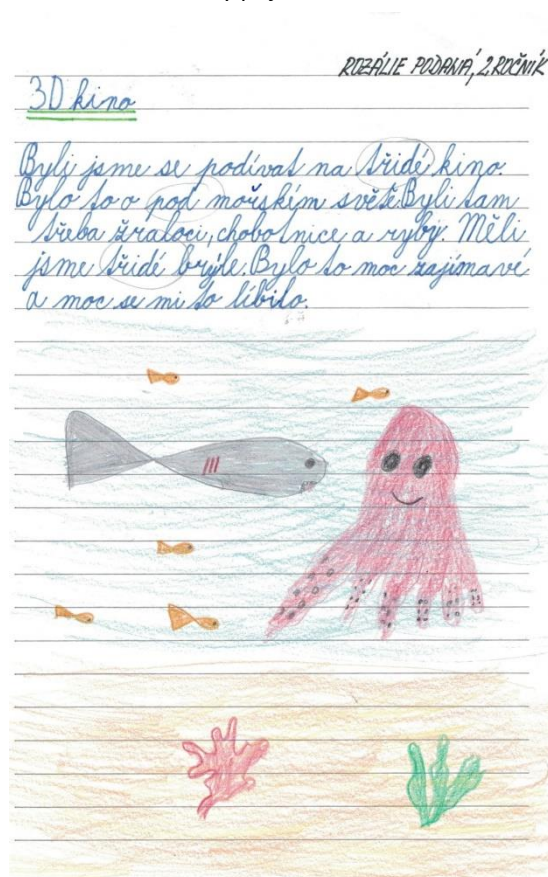 ROZÁLIE PODANÁ, 2.ROČNÍK
3D kino
Byli jsme se podívat na třidé kino.
Bylo to o pod mořském světě. Byli tam
třeba žraloci, chobotnice a ryby. Měli
jsme třidé brýle. Bylo to moc zajímavé
a moc se mi to líbilo.